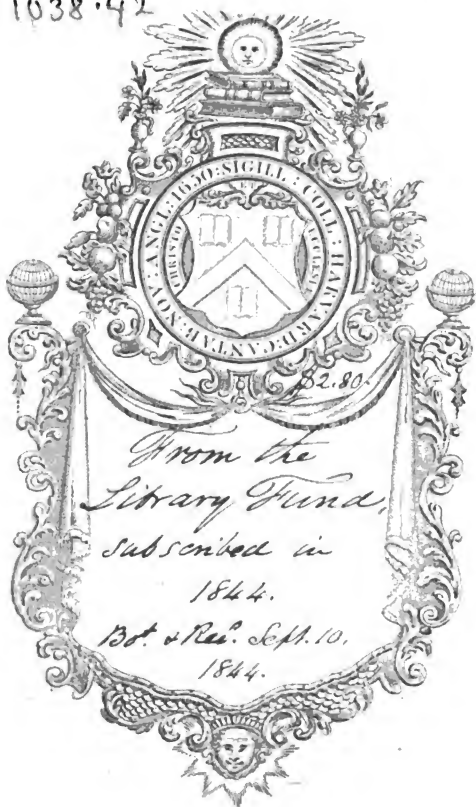 1038.42
SIGILL : COLL : HARVARD : CANTAB : NOV : ANGL : 1650 :
CHRISTO ET ECCLESIÆ
$2.80.
From the
Library Fund,
subscribed in
1844.
Bot. & Rec'd. Sept. 10.
1844.